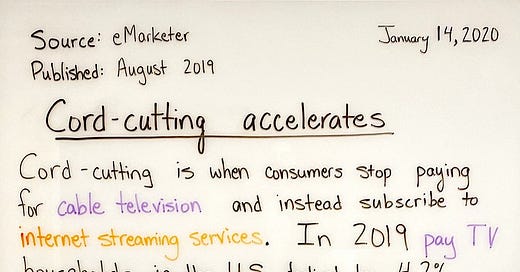 Source: eMarketer
January 14, 2020
Published: August 2019
Cord-cutting accelerates
Cord-cutting is when consumers stop paying
for cable television and instead subscribe to
internet streaming services. In 2019 pay TV
households in the U.S. declined by 4.2%